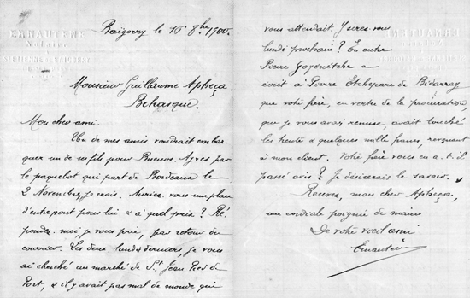 Baïgorry le 16 8bre 1900
Monsieur Guillaume Apheça
Béhasque
Mon cher ami.
Un de mes amis voudrait embar
quer un de ses fils pour Buenos Ayres par
le paquebot qui part de Bordeaux le
2 Novembre, je crois. Auriez vous une place
d'entrepont pour lui et à quel prix ? Ré
pondez moi je vous prie, par retour du
courrier. Les deux lundis derniers, je vous
ai cherché au marché de St Jean Pied de
Port, et il y avait pas mal de monde qui
vous attendait. Y serez-vous
lundi prochain ? En outre
Pierre
écrit à Pierre Etchepare de Bidarray
que votre frère, en vertu de la procuration
que je vous avais remise, avait touché
les trente et quelques mille francs, revenant
à mon client. Votre frère vous en a-t-il
passé avis ? Je désirerais le savoir.
Recevez, mon cher Apheça,
une cordiale poignée de mains
De votre tout ami